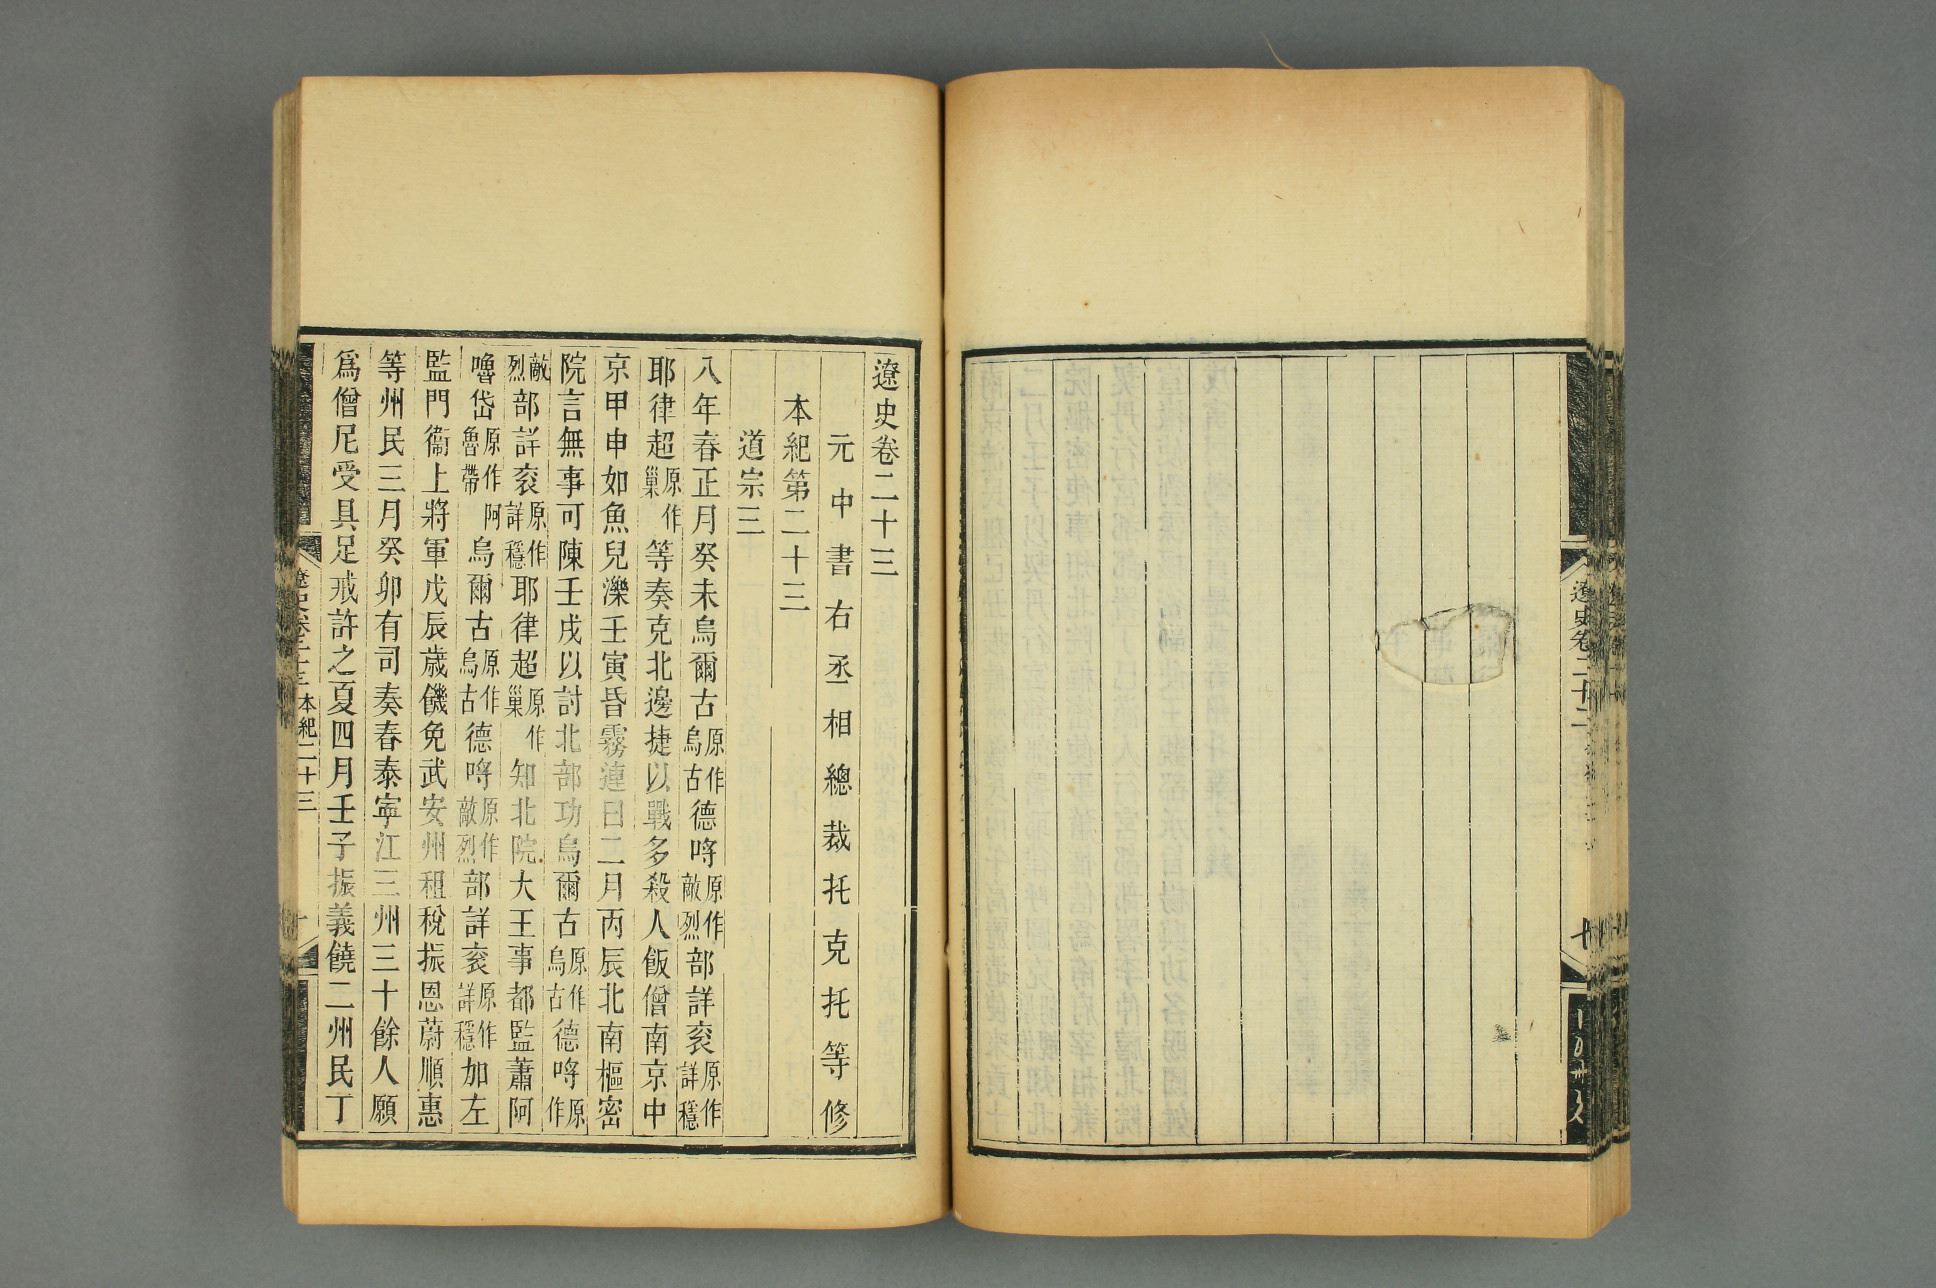 遼史卷二十二
遼史卷二十三
元中書右丞相總裁托克托等修
本紀第二十三
道宗三
八年春正月癸未烏爾古原作烏古德哷原作敵烈部詳衮原作詳穩
耶律超原作巢等奏克北邊捷以戰多殺人飯僧南京中
京甲申如魚兒濼壬寅昏霧連日二月丙辰北南樞密
院言無事可陳壬戌以討北部功烏爾古原作烏古德哷原作
敵烈部詳衮原作詳穩耶律超原作巢知北院大王事都監蕭阿
嚕岱原作阿魯帶烏爾古原作烏古德哷原作敵烈部詳衮原作詳穩加左
監門衞上將軍戊辰歲饑免武安州租稅振恩蔚順惠
等州民三月癸卯有司奏春泰寧江三州三十餘人願
爲僧尼受具足戒許之夏四月壬子振義饒二州民丁
遼史卷二十三 本紀二十三